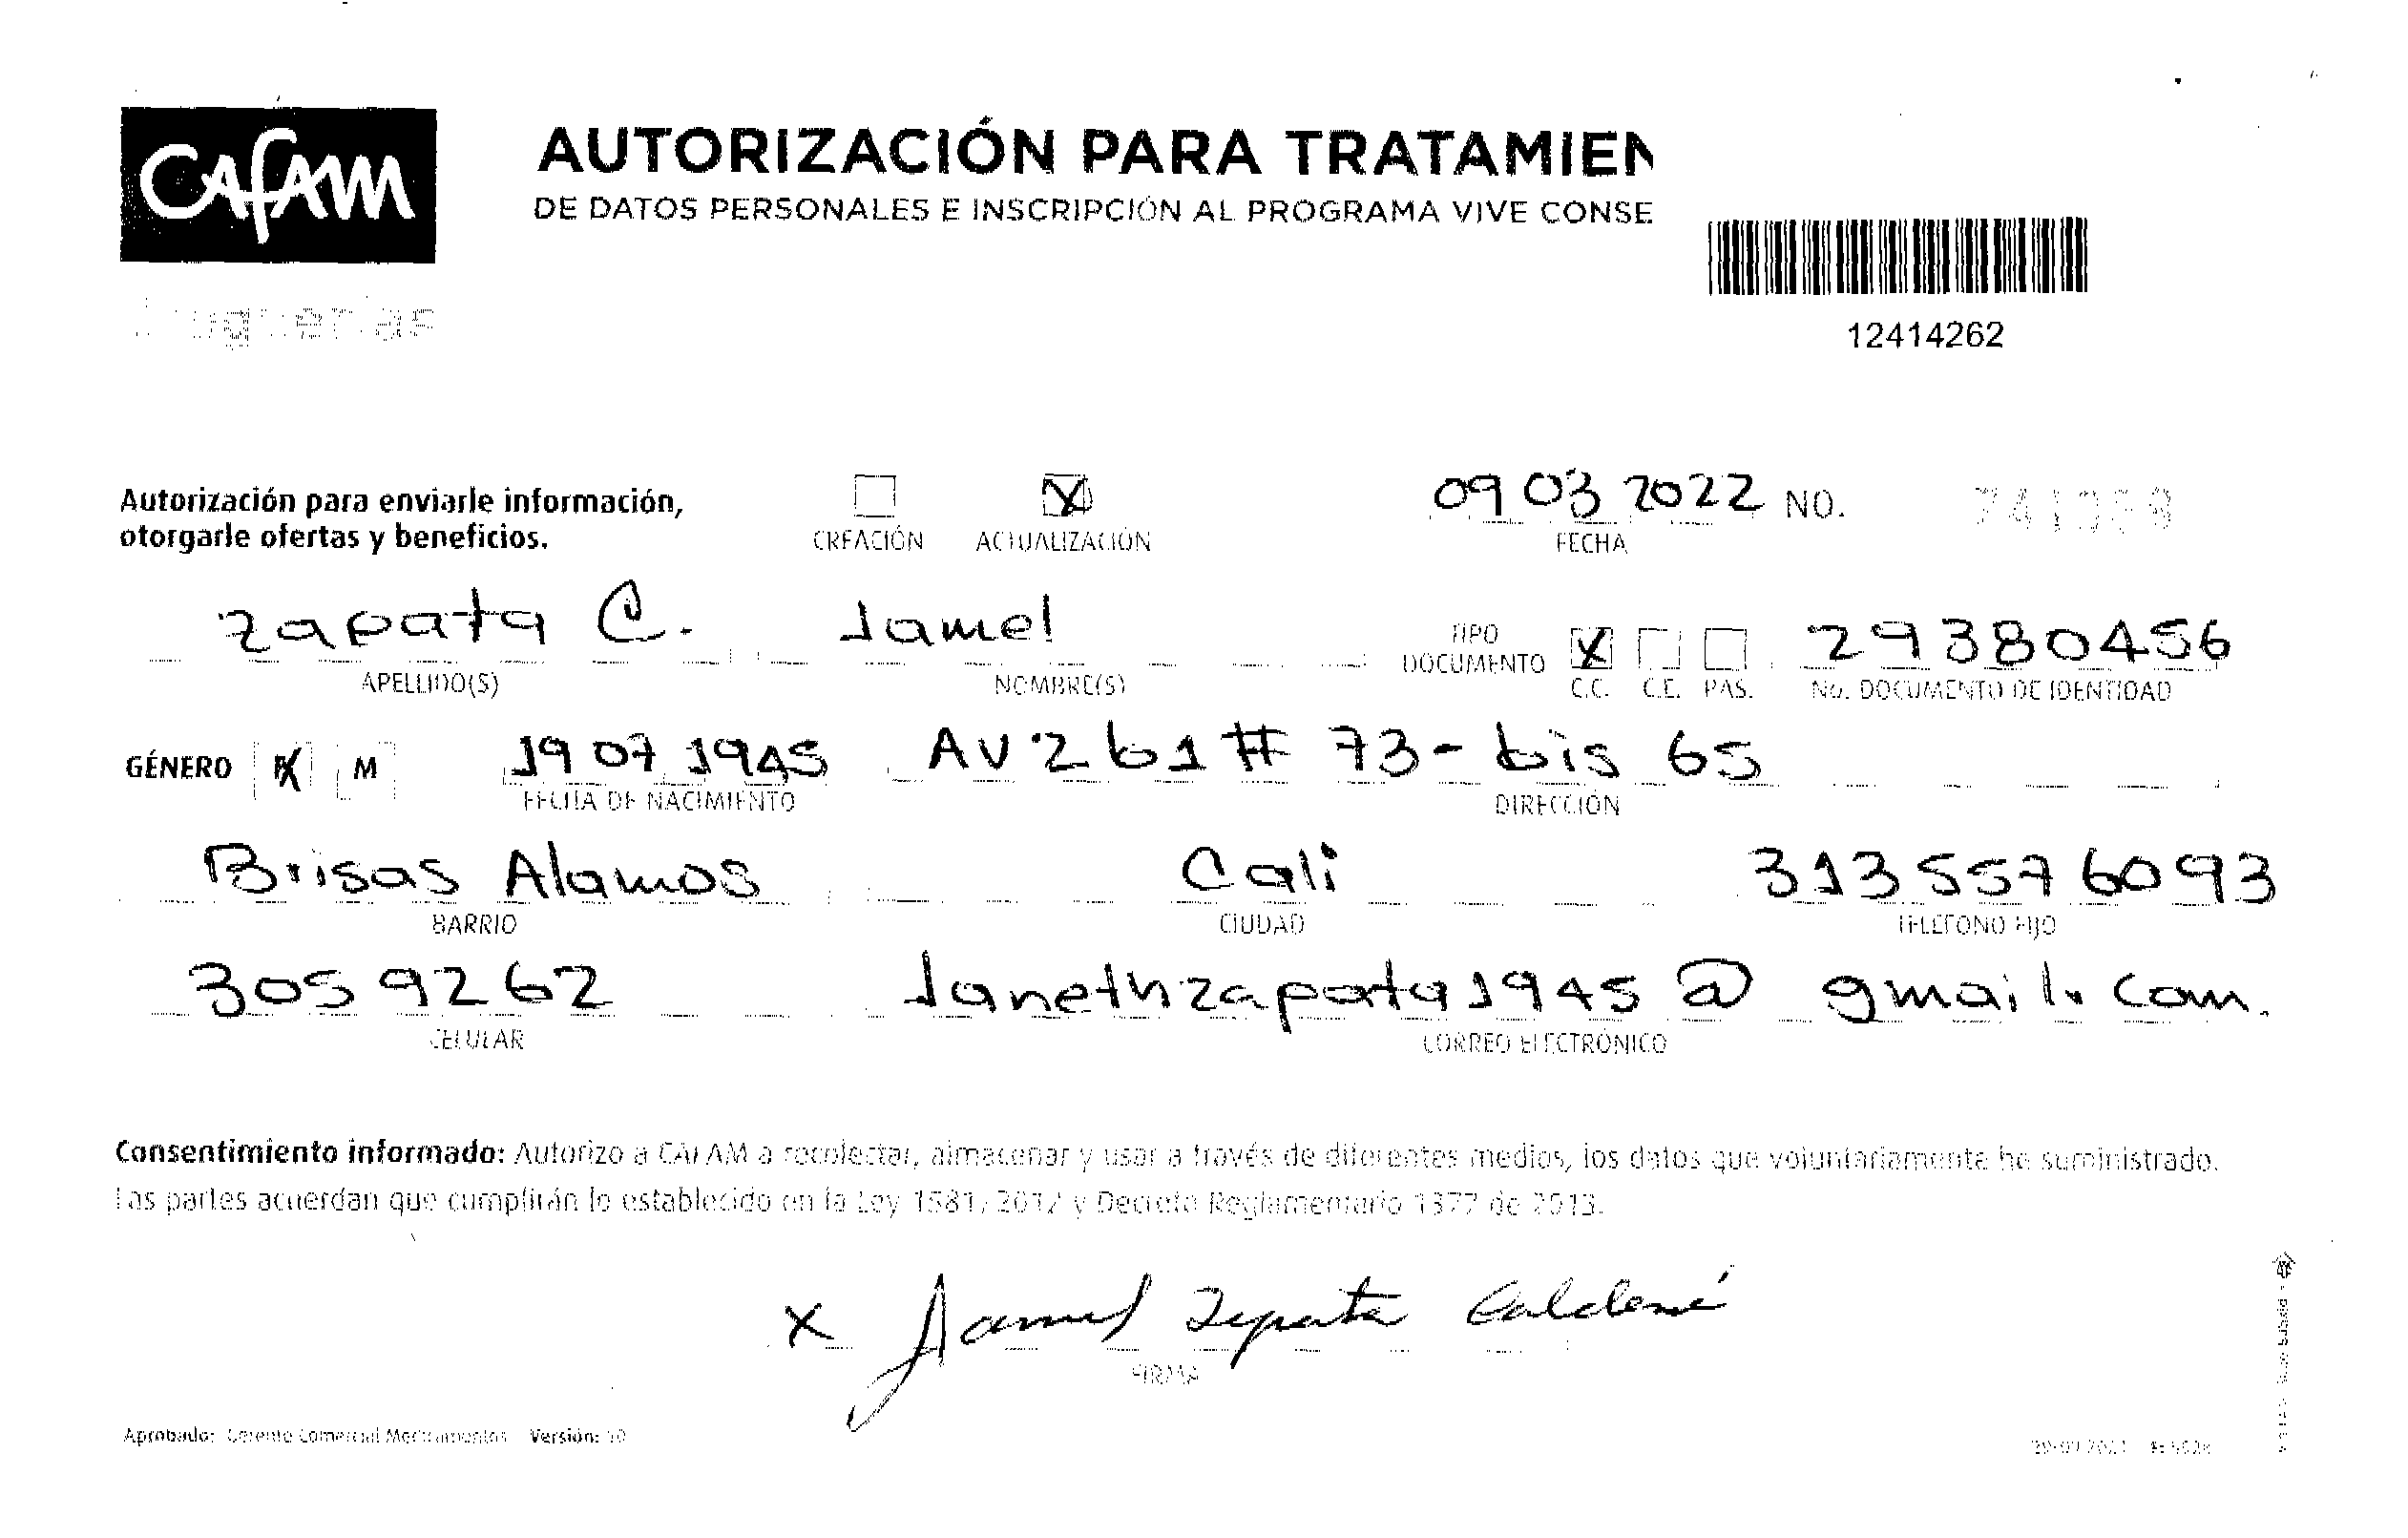 CAFAM
AUTORIZACIÓN PARA TRATAMIEN
DE DATOS PERSONALES E INSCRIPCIÓN AL PROGRAMA VIVE CONSE
12414262
Autorización para enviarle información,
otorgarle ofertas y beneficios.
CREACIÓN ACTUALIZACIÓN
09 03 2022 NO.
FECHA
Zapata C. Jamel
APELLIDO(S) NOMBRE(S)
TIPO DOCUMENTO X 29380456
C.C. C.E. PAS. No. DOCUMENTO DE IDENTIDAD
GÉNERO F M 19 07 1945 AV 2 b1 # 73- bis 65
FECHA DE NACIMIENTO DIRECCIÓN
Brisas Alamos Cali 3135576093
BARRIO CIUDAD TELEFONO FIJO
3059262 Janethzapata1945@gmail.com.
CELULAR CORREO ELECTRÓNICO
Consentimiento informado: Autorizo a CAFAM a recolectar, almacenar y usar a través de diferentes medios, los datos que voluntariamente he suministrado.
Las partes acuerdan que cumplirán lo establecido en la Ley 1581/2012 y Decreto Reglamentario 1377 de 2013.
x Jamel Zapata
FIRMA
Aprobado: Gerente Comercial Medicamentos Versión: 10